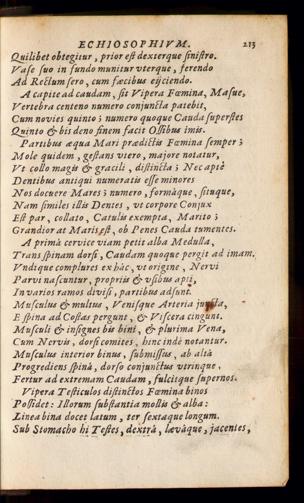 ECHIOSOPHIVM. 213
Quilibet obtegitur, prior est dexterque sinistro.
Vase suo in fundo munitur vterque, ferendo
Ad Rectum sero, cum fæcibus eijciendo.
A capite ad caudam, sit Vipera Fœmina, Masue,
Vertebra centeno numero conjuncta patebit,
Cum novies quinto; numero quoque Cauda superstes
Quinto & bis deno finem facit Ossibus imis.
Partibus æqua Mari prædictis Fœmina semper;
Mole quidem, gestans vtero, majore notatur,
Vt collo magis & gracili, distincta; Nec aptè
Dentibus antiqui numeratis esse minores
Nos docuere Mares; numero, formàque, situque,
Nam similes illis Dentes, vt corpore Conjux
Est par, collato, Catulis exempta, Marito;
Grandior at Maris est, ob Penes Cauda tumentes.
A primâ cervice viam petit alba Medulla,
Trans spinam dorsi, Caudam quoque pergit ad imam.
Vndique complures ex hàc, vt origine, Nervi
Parvi nascuntur, propriis & vsibus apti,
In varios ramos divisi, partibus adsunt.
Musculus & multus, Venisque Arteria juncta,
E spina ad Costas pergunt, & Viscera cingunt.
Musculi & insignes bis bini, & plurima Vena,
Cum Nervis, dorsi comites, hinc inde notantur.
Musculus interior binus, submissus, ab altà
Progrediens spinà, dorso conjunctus vtrinque,
Fertur ad extremam Caudam, fulcitque supernos.
Vipera Testiculos distinctos Fœmina binos
Possidet: Illorum substantia mollis & alba:
Linea bina docet latum, ter sextaque longum.
Sub Stomacho hi Testes, dextrà, lævàque, jacentes,